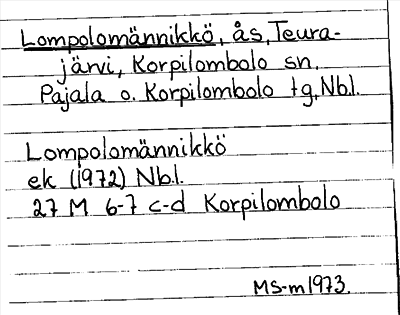 Lompolomännikkö, ås, Teura-
järvi, Korpilombolo sn,
Pajala o. Korpilombolo tg, Nbl.
Lompolomännikkö
ek (1972) Nbl.
27 M 6-7 c-d Korpilombolo
MS-m 1973.